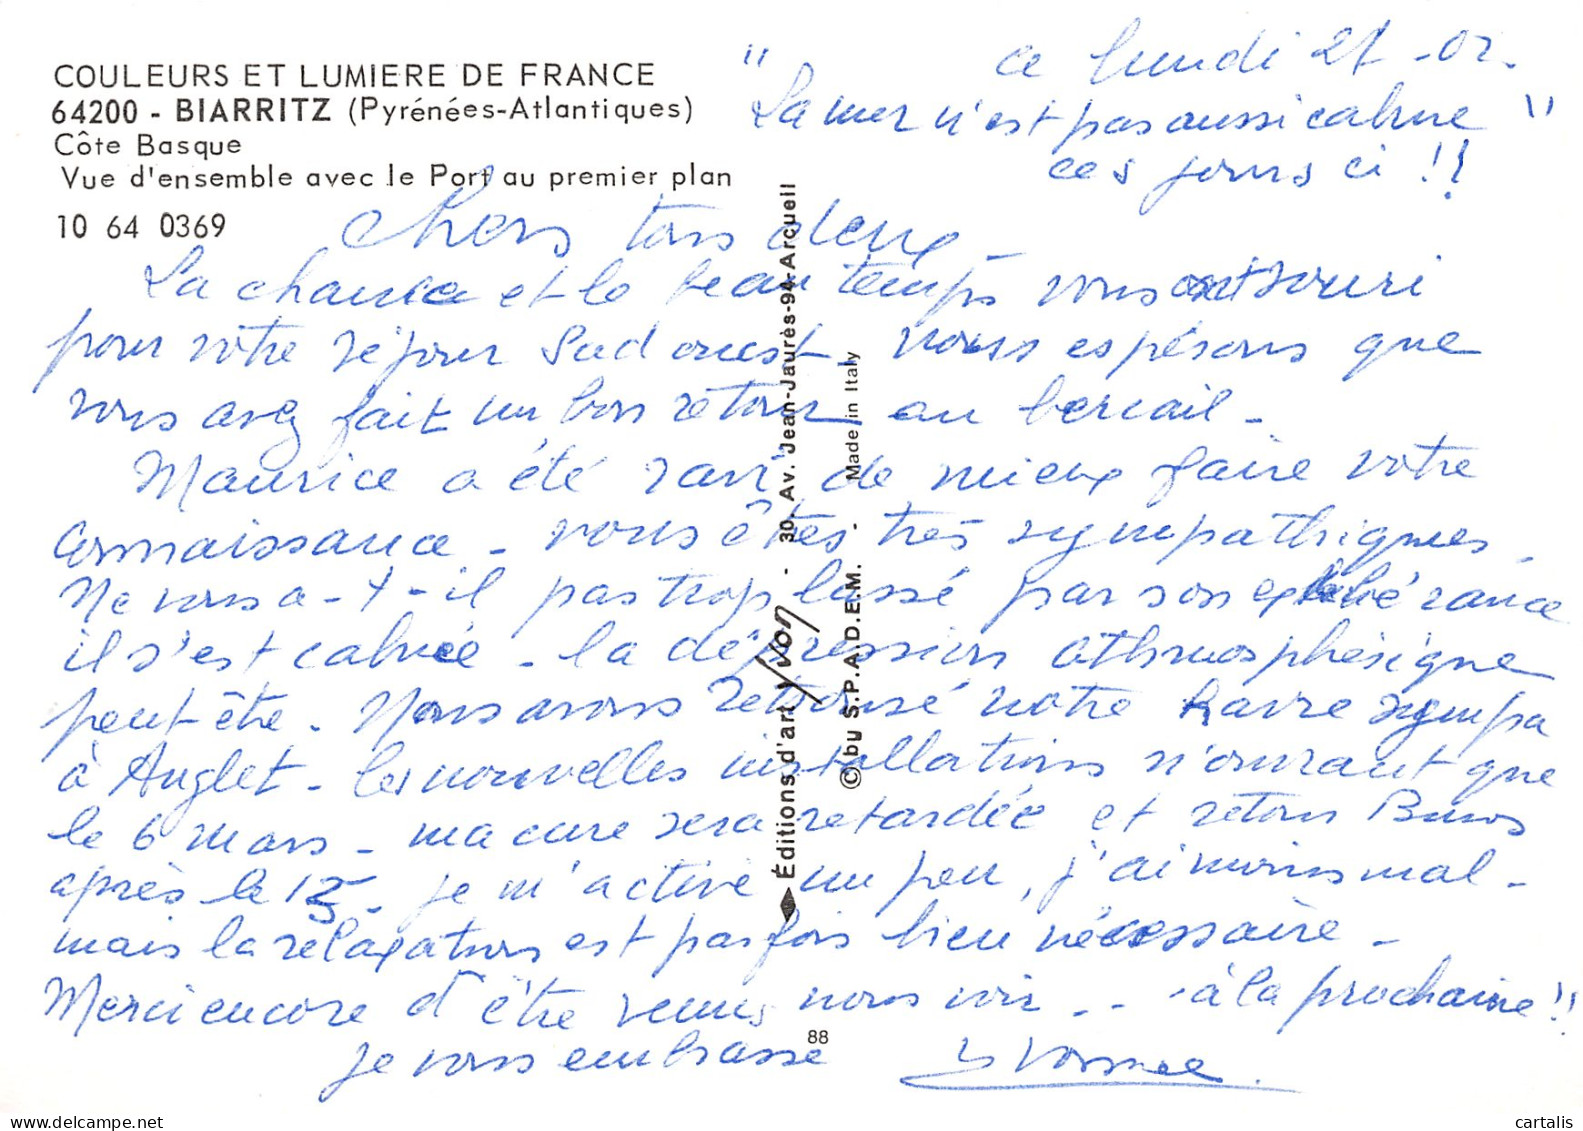 COULEURS ET LUMIERE DE FRANCE
64200 - BIARRITZ (Pyrénées-Atlantiques)
Côte Basque
Vue d'ensemble avec le Port au premier plan
10 64 0369
ce lundi 21-02-
"La mer n'est pas aussi calme"
ces jours ci !!
Chers tous deux -
La chance et le beau temps vous ont souri
pour votre séjour Sud ouest, nous espérons que
vous avez fait un bon retour au bercail -
Maurice a été ravi de mieux faire votre
connaissance - vous êtes très sympathiques -
Ne vous a-t-il pas trop lassé par son exhubérance
il s'est calmé - la dépression athmosphérique
peut être - Nous avons retrouvé notre havre sympa
à Anglet - les nouvelles installations n'ouvrant que
le 6 mars - ma cure sera retardée et retour
après le 15 - je m'active un peu, j'ai moins mal -
mais la relaxation est parfois bien nécessaire -
Merci encore d'être venus nous voir - - - à la prochaine !!
je vous embrasse Yvonne
Éditions d'art Yvon - 30, Av. Jean-Jaurès-94-Arcueil
© by S.P.A.D.E.M. - Made in Italy
88
delcampe.net
cartalis